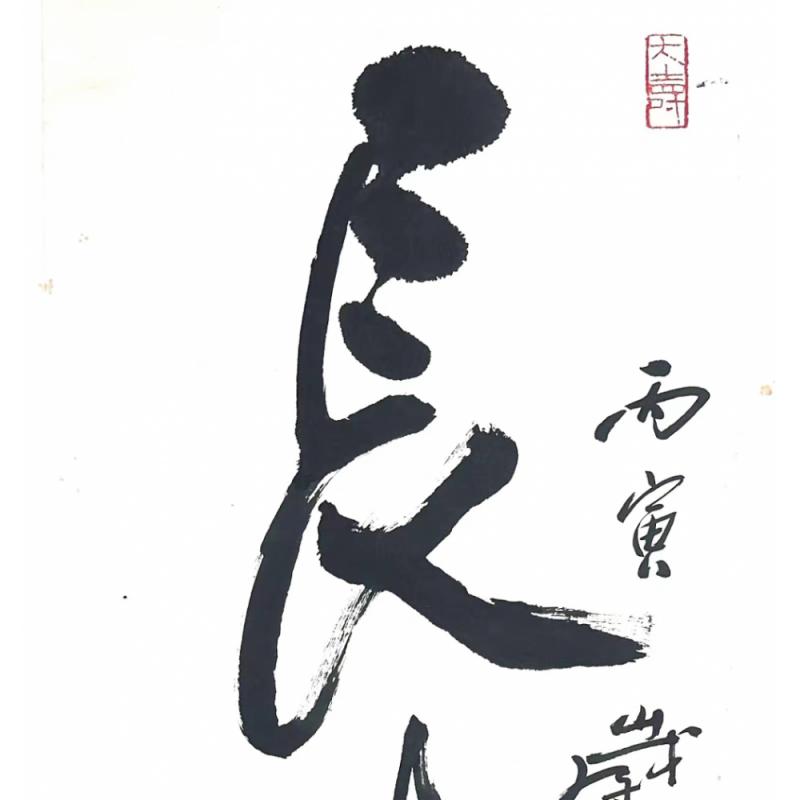 大壽
丙寅歲
長